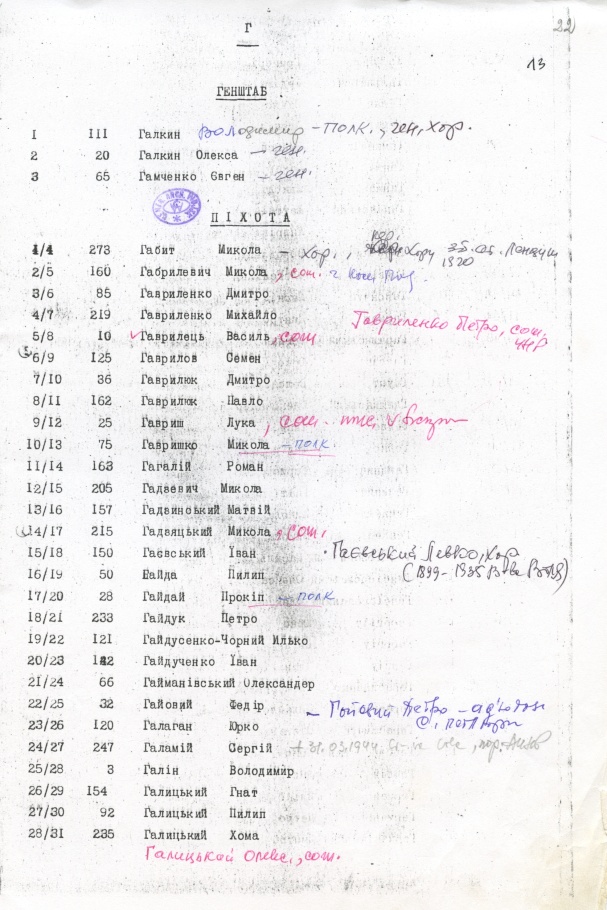 Г
22
13
ГЕНШТАБ
I 111 Галкин Володимир - ПОЛК., ген. хор.
2 20 Галкин Олекса - ген.
3 65 Гамченко Євген - ген.
ПІХОТА
1/4 273 Габит Микола - хор.,
1920
2/5 160 Габрилевич Микола, сот.
3/6 85 Гавриленко Дмитро
4/7 219 Гавриленко Михайло
Гавриленко Петро, сот.
УНР
5/8 10 Гаврилець Василь, сот
6/9 125 Гаврилов Семен
7/10 36 Гаврилюк Дмитро
8/11 162 Гаврилюк Павло
9/12 25 Гавриш Лука, сот.
10/13 75 Гавришко Микола - полк.
11/14 163 Гагалій Роман
12/15 205 Гадзевич Микола
13/16 157 Гадзинський Матвій
14/17 215 Гадзяцький Микола, сот.
15/18 150 Гаєвський Їван
Гаєвський Левко, хор
(1899-1935
16/19 50 Гайда Пилип
17/20 28 Гайдай Прокіп - полк
18/21 233 Гайдук Петро
19/22 121 Гайдусенко-Чорний Илько
20/23 142 Гайдученко Їван
21/24 66 Гайманівський Олександер
22/25 32 Гайовий Федір
- Петро - ад'ютант
С. Петлюри
23/26 120 Галаган Юрко
24/27 247 Галамій Сергій + 31.03.1944
25/28 3 Галін Володимир
26/29 154 Галицький Гнат
27/30 92 Галицький Пилип
28/31 235 Галицький Хома
Галицький Олекс., сот.